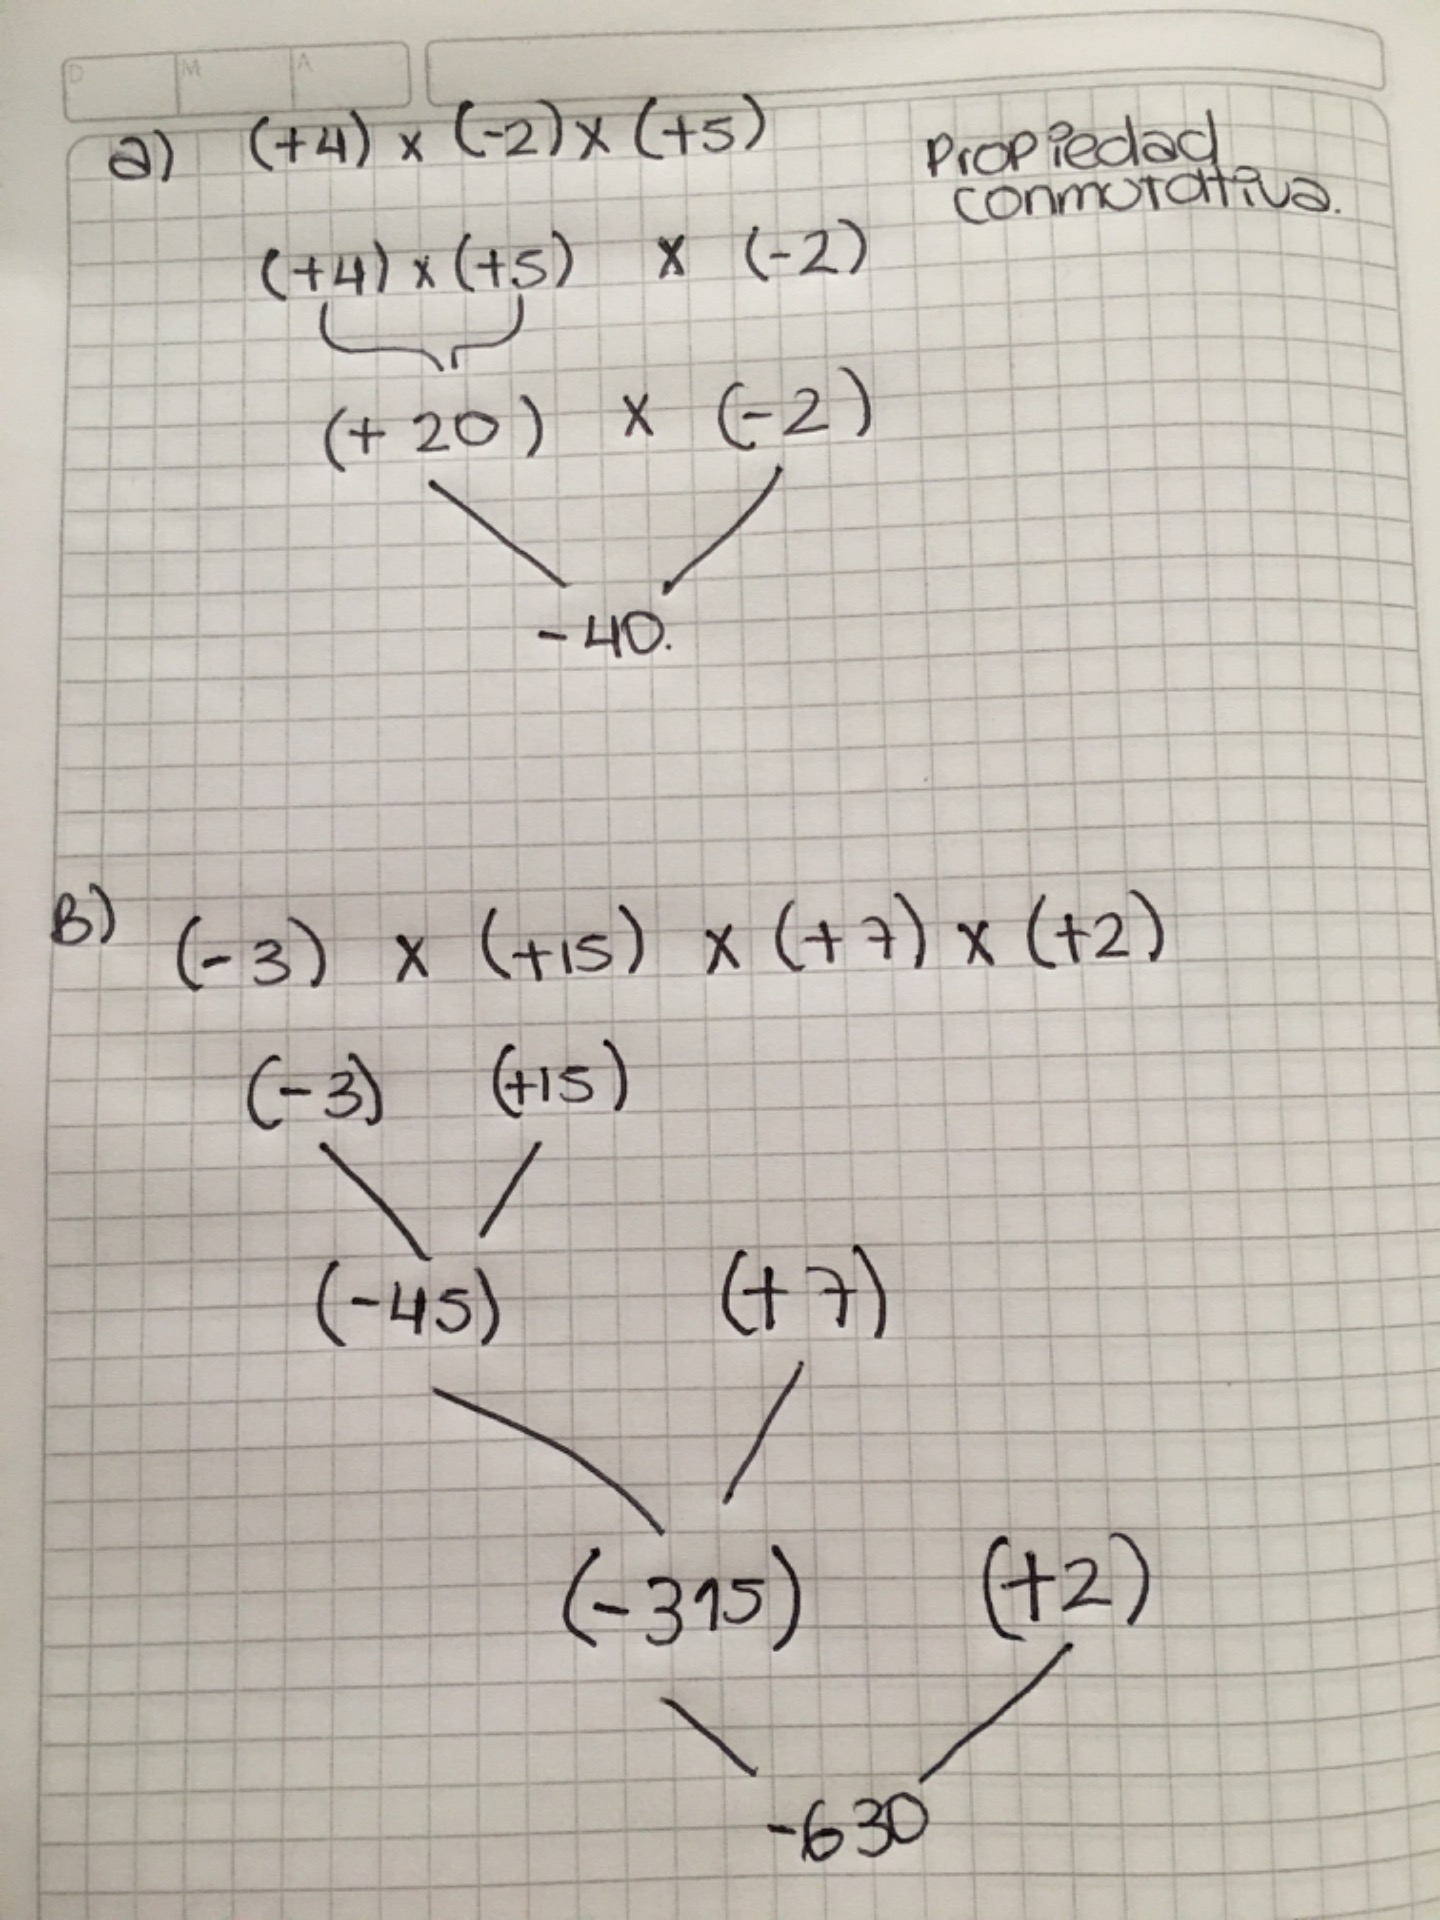 D M A
a) (+4) x (-2) x (+5)
Propiedad
conmutativa.
(+4) x (+5) x (-2)
(+20) x (-2)
-40.
B) (-3) x (+15) x (+7) x (+2)
(-3) (+15)
(-45) (+7)
(-315) (+2)
-630